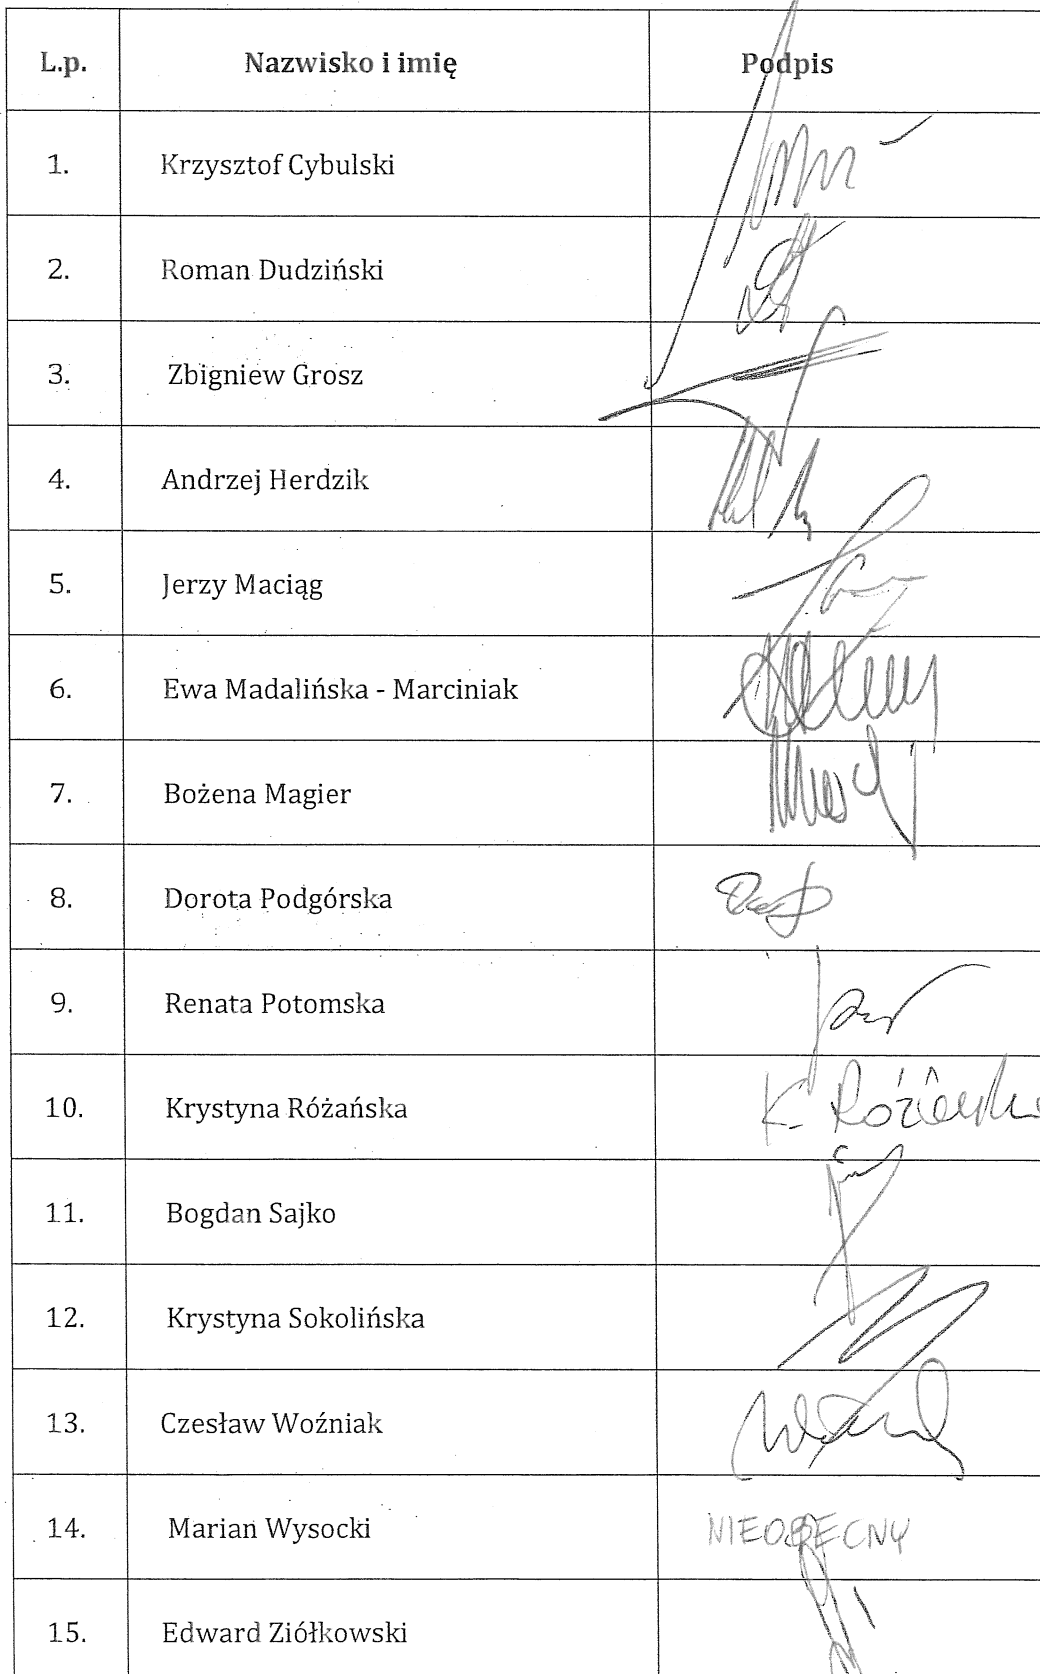 L.p. Nazwisko i imię Podpis
1. Krzysztof Cybulski
2. Roman Dudziński
3. Zbigniew Grosz
4. Andrzej Herdzik
5. Jerzy Maciąg
6. Ewa Madalińska - Marciniak
7. Bożena Magier
8. Dorota Podgórska
9. Renata Potomska
10. Krystyna Różańska K. Różańska
11. Bogdan Sajko
12. Krystyna Sokolińska
13. Czesław Woźniak
14. Marian Wysocki NIEOBECNY
15. Edward Ziółkowski